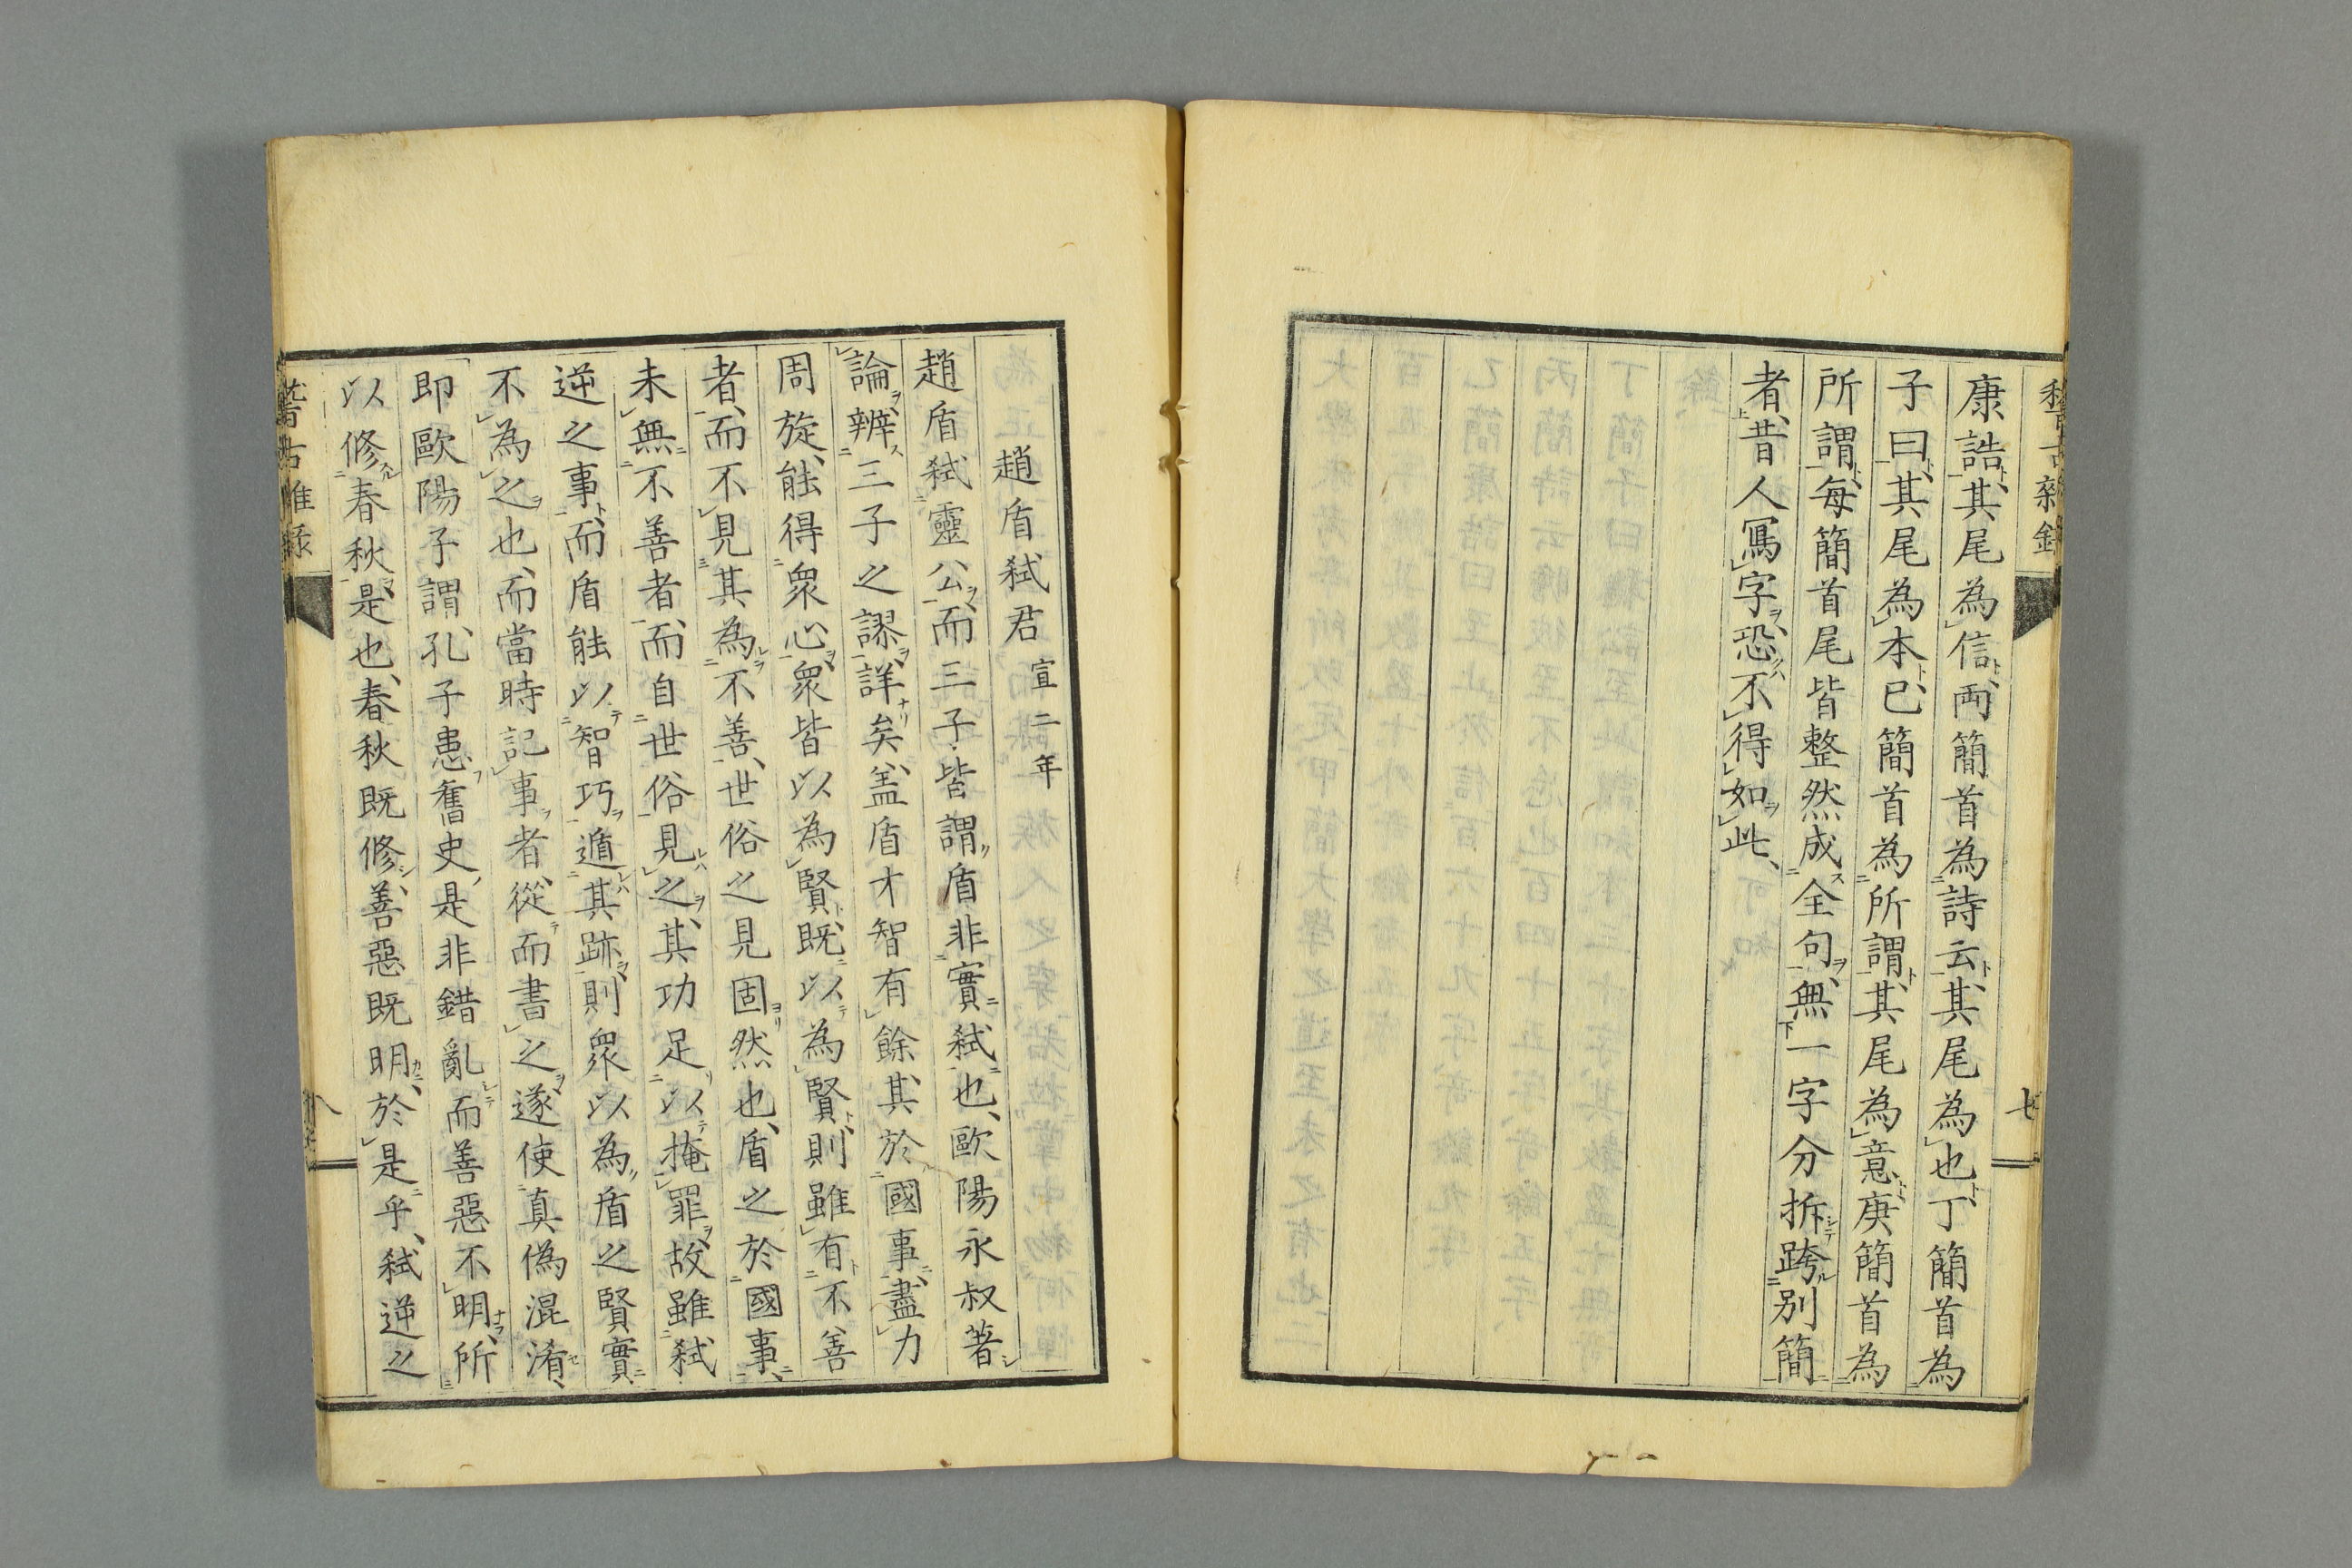 康誥、其尾為信、両簡首為詩云、其尾為也、丁簡首為
子曰、其尾為本、已簡首為所謂、其尾為意、庚簡首為
所謂、每簡首尾皆整然成全句、無一字分拆跨別簡
者、昔人寫字、恐不得如此、
七
趙盾弑君宣二年
趙盾弑靈公、而三子皆謂盾非實弑也、歐陽永叔著
論、辨三子之謬、詳矣、盖盾才智有餘、其於國事、盡力
周旋、能得衆心、衆皆以為賢、既以為賢、則雖有不善
者、而不見其為不善、世俗之見固然也、盾之於國事、
未無不善者、而自世俗見之、其功足以掩罪、故雖弑
逆之事、而盾能以智巧遁其跡、則衆以為盾之賢實
不為之也、而當時記事者、從而書之、遂使真偽混淆、
即歐陽子謂、孔子患舊史、是非錯亂而善惡不明、所
以修春秋是也、春秋既修、善惡既明、於是乎、弑逆之
稽古雜錄
八